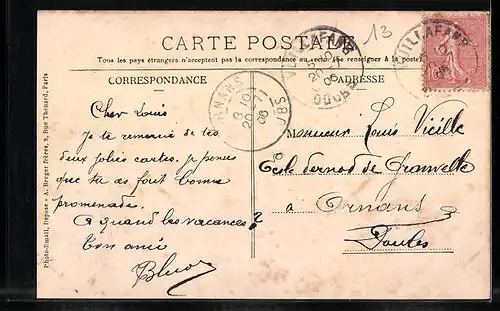 CARTE POSTALE
13
Tous les pays étrangers n'acceptent pas la correspondance au recto (Se renseigner à la poste).
CORRESPONDANCE
ADRESSE
VUILLAFANS
DOUBS
VUILLAFANS
ORNANS
20-7
06
DOUBS
Cher Louis
Je te remercie de tes
deux jolies cartes. je pense
que tu as fait bonne
promenade.
A quand les vacances?
Ton ami
Monsieur Louis Vieille
Ecole de Granvelle
à Ornans
Doubs
Photo-Email, Déposé - A. Breger frères, 9, Rue Thénard, Paris